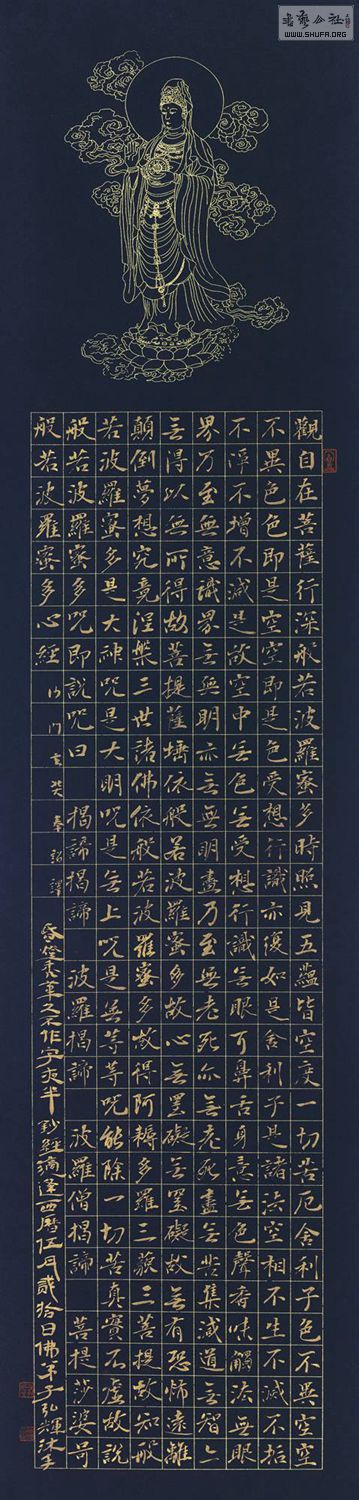 書藝公社
WWW.SHUFA.ORG
觀自在菩薩行深般若波羅蜜多時照見五蘊皆空度一切苦厄舍利子色不異空空
不異色色即是空空即是色受想行識亦復如是舍利子是諸法空相不生不滅不垢
不淨不增不減是故空中無色無受想行識無眼耳鼻舌身意無色聲香味觸法無眼
界乃至無意識界無無明亦無無明盡乃至無老死亦無老死盡無苦集滅道無智亦
無得以無所得故菩提薩埵依般若波羅蜜多故心無罣礙無罣礙故無有恐怖遠離
顛倒夢想究竟涅槃三世諸佛依般若波羅蜜多故得阿耨多羅三藐三菩提故知般
若波羅蜜多是大神咒是大明咒是無上咒是無等等咒能除一切苦真實不虛故說
般若波羅蜜多咒即說咒曰 揭諦揭諦 波羅揭諦 波羅僧揭諦 菩提莎婆訶
般若波羅蜜多心經 沙門玄奘奉詔譯
久不作字夜半鈔經 西曆伍月貳拾日佛弟子弘輝沐手